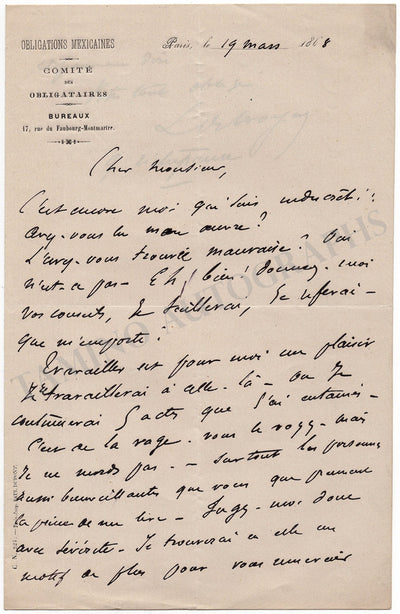 OBLIGATIONS MEXICAINES
COMITÉ
DES
OBLIGATAIRES
BUREAUX
17, rue du Faubourg-Montmartre.
Paris, le 19 mars 1868
Cher Monsieur,
C'est encore moi qui suis indiscret!
avez-vous lu mon œuvre?
L'avez-vous trouvée mauvaise? Oui
n'est-ce pas - Eh! bien! donnez-moi
vos conseils, Je taillerai, Je referai -
que m'importe!
Travailler est pour moi un plaisir
Je travaillerai à celle-là - ou Je
continuerai 5 actes que J'ai entamés -
C'est de la rage - vous le voyez - mais
Je ne mords pas - surtout les personnes
aussi bienveillantes que vous qui prennent
la peine de me lire - Jugez-moi donc
avec sévérité - Je trouverai en elle un
motif de plus pour vous remercier
TAMINO AUTOGRAPHS